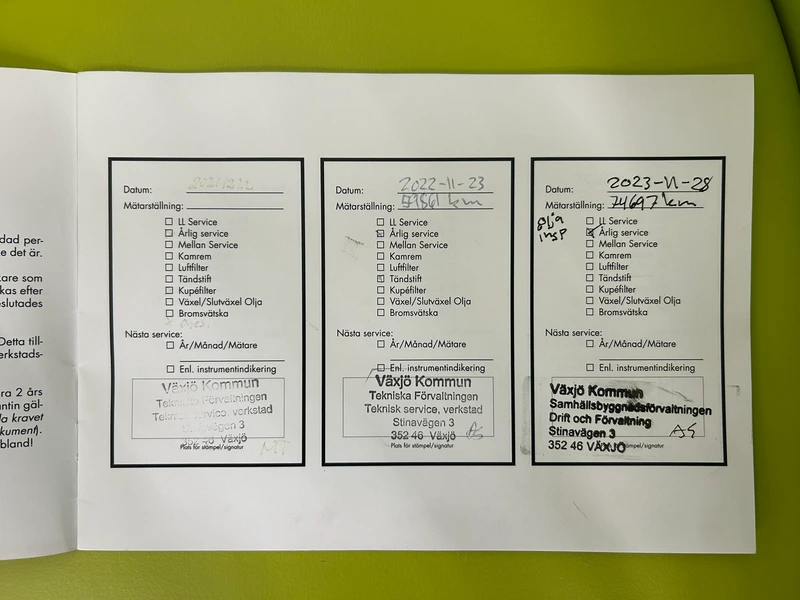 dad per-
e det är.
kare som
kas efter
slutades
Detta till-
erkstads-
ra 2 års
ntin gäl-
la kravet
kument).
bland!
Datum:
Mätarställning:
LL Service
Årlig service
Mellan Service
Kamrem
Luftfilter
Tändstift
Kupéfilter
Växel/Slutväxel Olja
Bromsvätska
Nästa service:
År/Månad/Mätare
Enl. instrumentindikering
Växjö Kommun
Tekniska Förvaltningen
Teknisk service, verkstad
Stinavägen 3
352 46 Växjö
Plats för stämpel/signatur
Datum: 2022-11-23
Mätarställning: 59861 km
LL Service
Årlig service
Mellan Service
Kamrem
Luftfilter
Tändstift
Kupéfilter
Växel/Slutväxel Olja
Bromsvätska
Nästa service:
År/Månad/Mätare
Enl. instrumentindikering
Växjö Kommun
Tekniska Förvaltningen
Teknisk service, verkstad
Stinavägen 3
352 46 Växjö
AS
Plats för stämpel/signatur
Datum: 2023-11-28
Mätarställning: 74697 km
olja
insp
LL Service
Årlig service
Mellan Service
Kamrem
Luftfilter
Tändstift
Kupéfilter
Växel/Slutväxel Olja
Bromsvätska
Nästa service:
År/Månad/Mätare
Enl. instrumentindikering
Växjö Kommun
Samhällsbyggnadsförvaltningen
Drift och Förvaltning
Stinavägen 3
AS
352 46 VÄXJÖ
stämpel/signatur